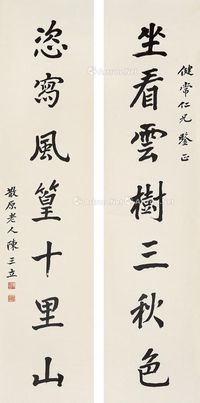 健常仁兄鑒正
坐看雲樹三秋色
恣寫風篁十里山
散原老人陳三立